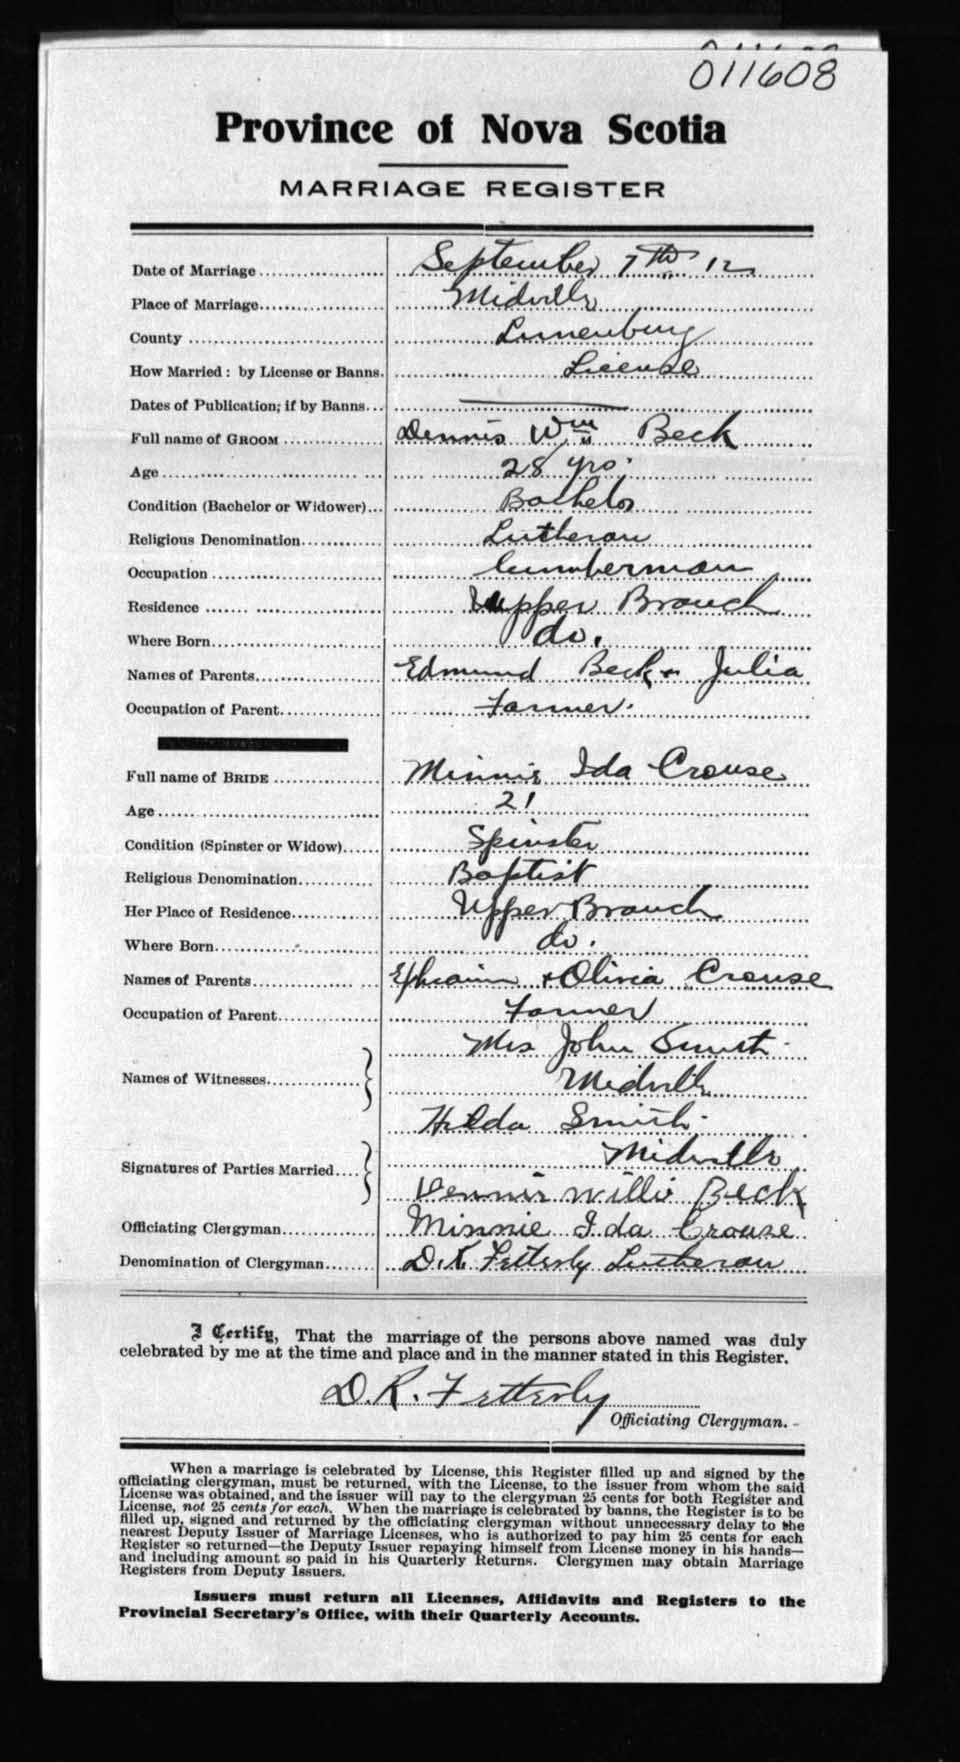 011608
Province of Nova Scotia
MARRIAGE REGISTER
Date of Marriage September 7th 12
Place of Marriage Midville
County Lunenburg
How Married: by License or Banns. License
Dates of Publication; if by Banns
Full name of GROOM Dennis Wm Beck
Age 28 yrs.
Condition (Bachelor or Widower) Bachelor
Religious Denomination Lutheran
Occupation lumberman
Residence Upper Branch
Where Born do.
Names of Parents Edmund Beck + Julia
Occupation of Parent Farmer.
Full name of BRIDE Minnie Ida Crouse
Age 21
Condition (Spinster or Widow) Spinster
Religious Denomination Baptist
Her Place of Residence Upper Branch
Where Born do.
Names of Parents Ephraim + Olivia Crouse
Occupation of Parent Farmer
Mrs John Smith
Names of Witnesses Midville
Hilda Smith
Signatures of Parties Married Midville
Dennis Willis Beck
Officiating Clergyman Minnie Ida Crouse
Denomination of Clergyman D. R. Fetterly Lutheran
I Certify, That the marriage of the persons above named was duly
celebrated by me at the time and place and in the manner stated in this Register.
D. R. Fetterly
Officiating Clergyman.
When a marriage is celebrated by License, this Register filled up and signed by the
officiating clergyman, must be returned, with the License, to the issuer from whom the said
License was obtained, and the issuer will pay to the clergyman 25 cents for both Register and
License, not 25 cents for each. When the marriage is celebrated by banns, the Register is to be
filled up, signed and returned by the officiating clergyman without unnecessary delay to the
nearest Deputy Issuer of Marriage Licenses, who is authorized to pay him 25 cents for each
Register so returned—the Deputy Issuer repaying himself from License money in his hands—
and including amount so paid in his Quarterly Returns. Clergymen may obtain Marriage
Registers from Deputy Issuers.
Issuers must return all Licenses, Affidavits and Registers to the
Provincial Secretary's Office, with their Quarterly Accounts.